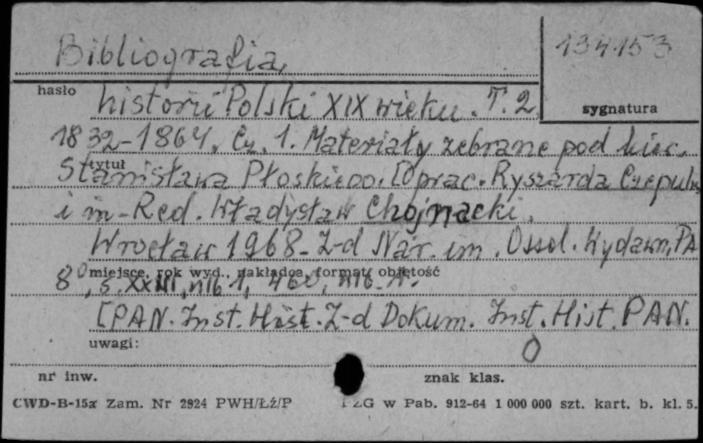 Bibliografia
134153
hasło
historii Polski XIX wieku. T. 2
sygnatura
1832-1864. Cz. 1. Materiały zebrane pod kier.
tytuł
Stanisława Płoskiego. [Oprac. Ryszarda Czepulis
i in. Red. Władysław Chojnacki.
Wrocław 1968. Z-d Nar. im. Ossol. Wydawn. PA
miejsce, rok wyd., nakładca, format, objętość
8°, s. XXIII, nlb 1, 460, nlb. 1.
[PAN. Inst. Hist. Z-d Dokum. Inst. Hist. PAN.
uwagi:
nr inw.
znak klas.
CWD-B-15a Zam. Nr 2924 PWH/Łź/P
ZG w Pab. 912-64 1 000 000 szt. kart. b. kl. 5.